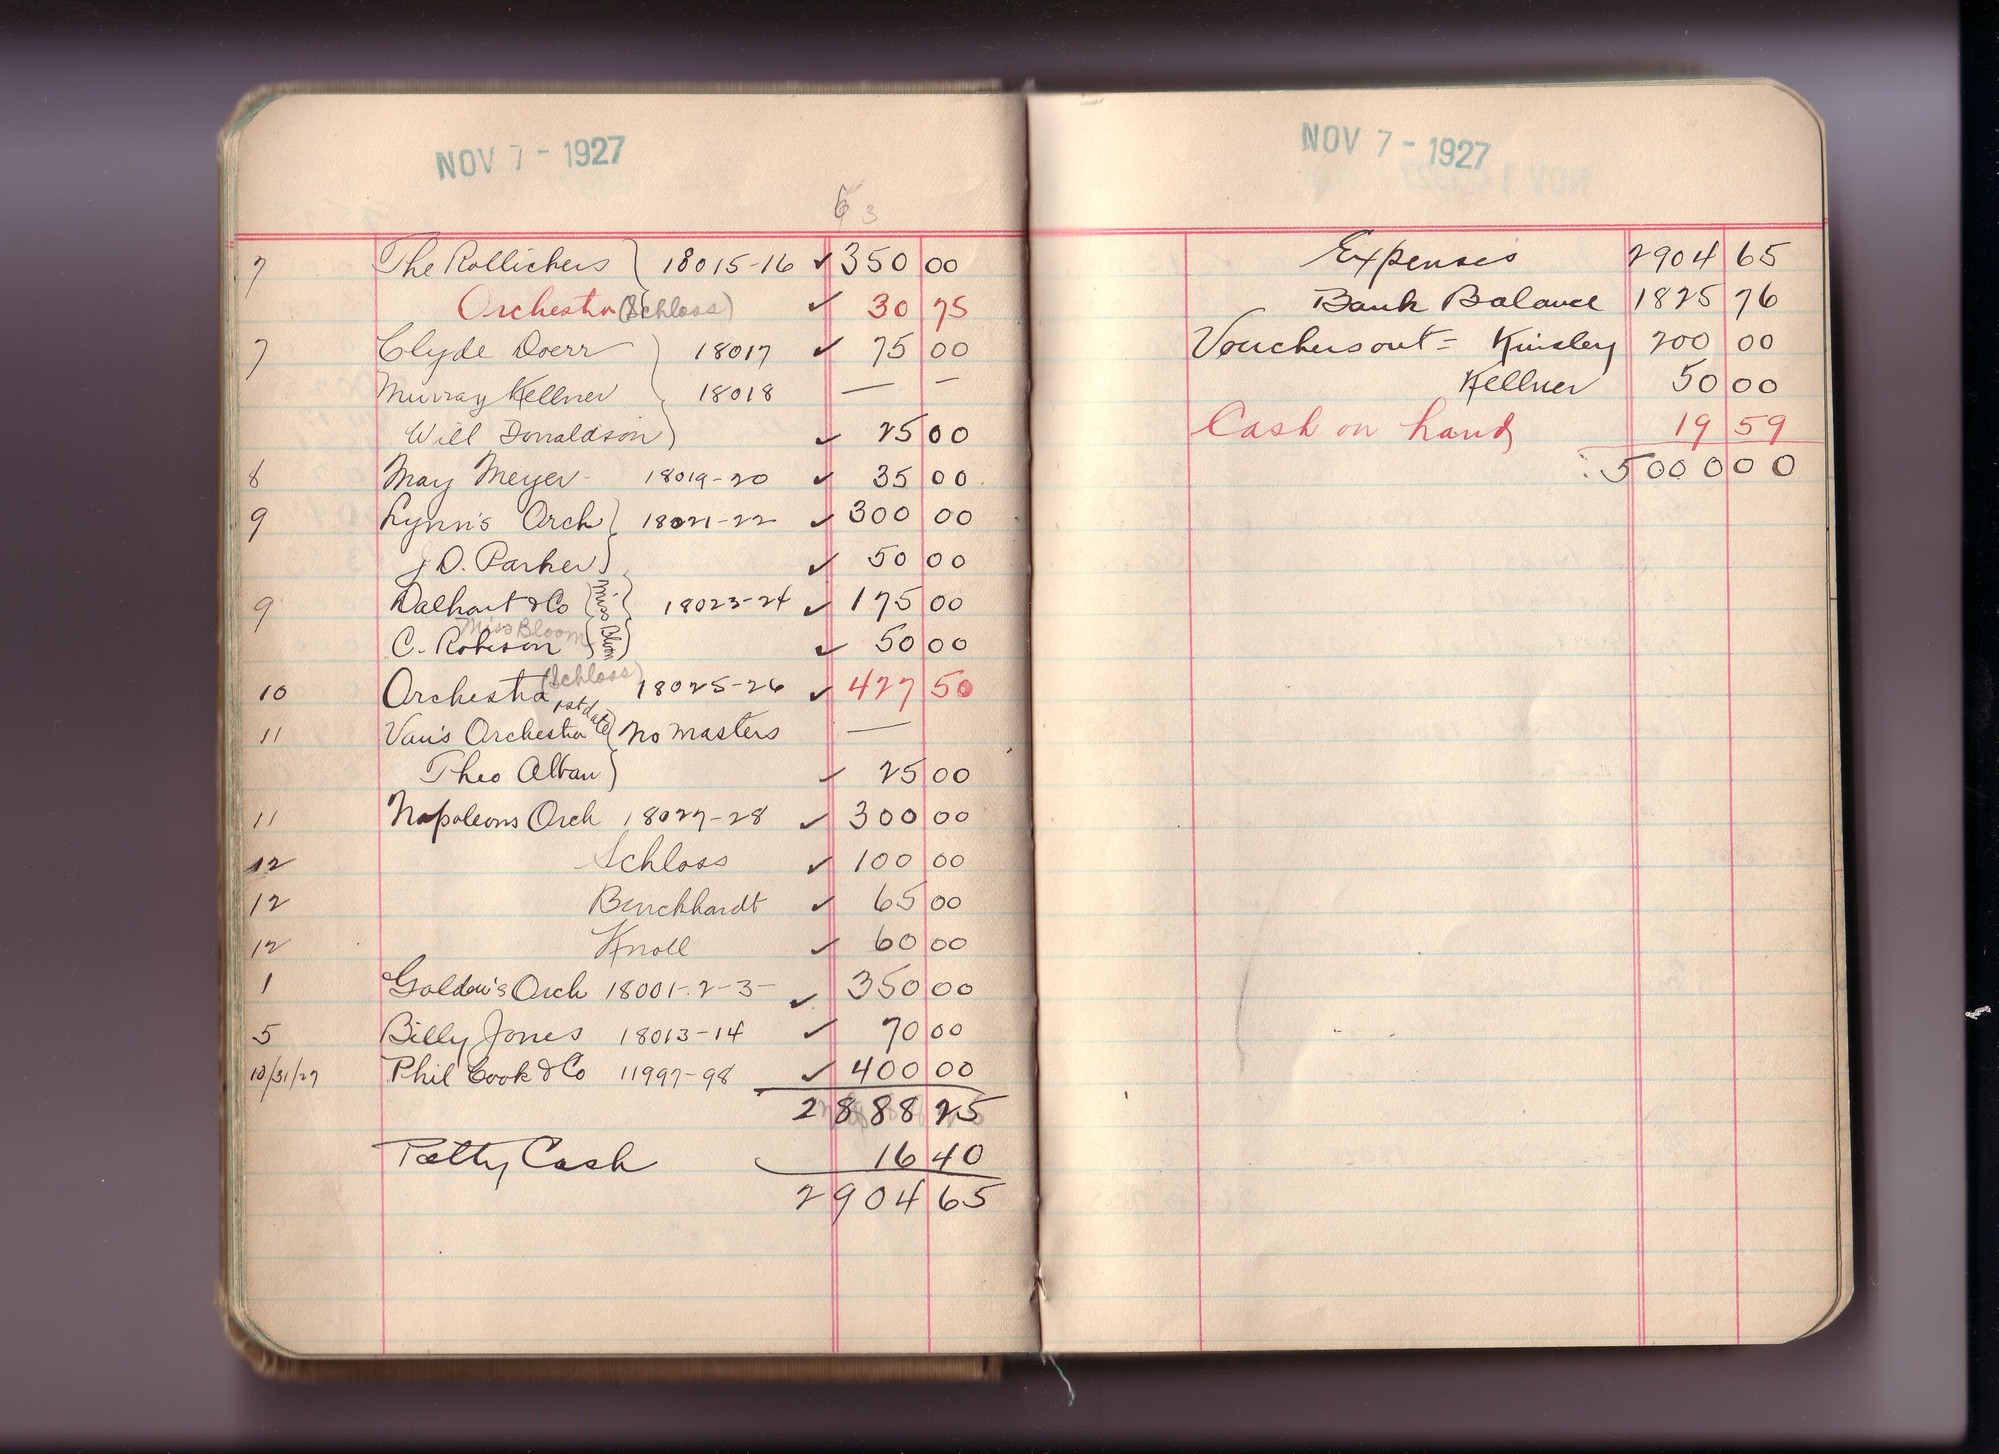 NOV 7 - 1927
7 The Rollickers 18015-16 ✓ 350 00
Orchestra (Schloss) ✓ 30 75
7 Clyde Doerr 18017 ✓ 75 00
Murray Kellner 18018 — –
Will Donaldson ✓ 25 00
8 May Meyer - 18019-20 ✓ 35 00
9 Lynn's Orch 18021-22 ✓ 300 00
J D. Parker ✓ 50 00
9 Dalhart & Co Miss Bloom 18023-24 ✓ 175 00
Miss Bloom
C. Robison ✓ 50 00
10 Orchestra (Schloss) 18025-26 ✓ 427 50
1st date
11 Van's Orchestra No masters —
Theo Alban ✓ 25 00
11 Napoleons Orch 18027-28 ✓ 300 00
12 Schloss ✓ 100 00
12 Burckhardt ✓ 65 00
12 Knoll ✓ 60 00
1 Golden's Orch 18001-2-3- ✓ 350 00
5 Billy Jones 18013-14 ✓ 70 00
10/31/27 Phil Cook & Co 11997-98 ✓ 400 00
2888 25
Petty Cash 16 40
2904 65
NOV 7 - 1927
Expenses 2904 65
Bank Balance 1825 76
Vouchers out = Kinsley 200 00
Kellner 50 00
Cash on hand 19 59
5000 00